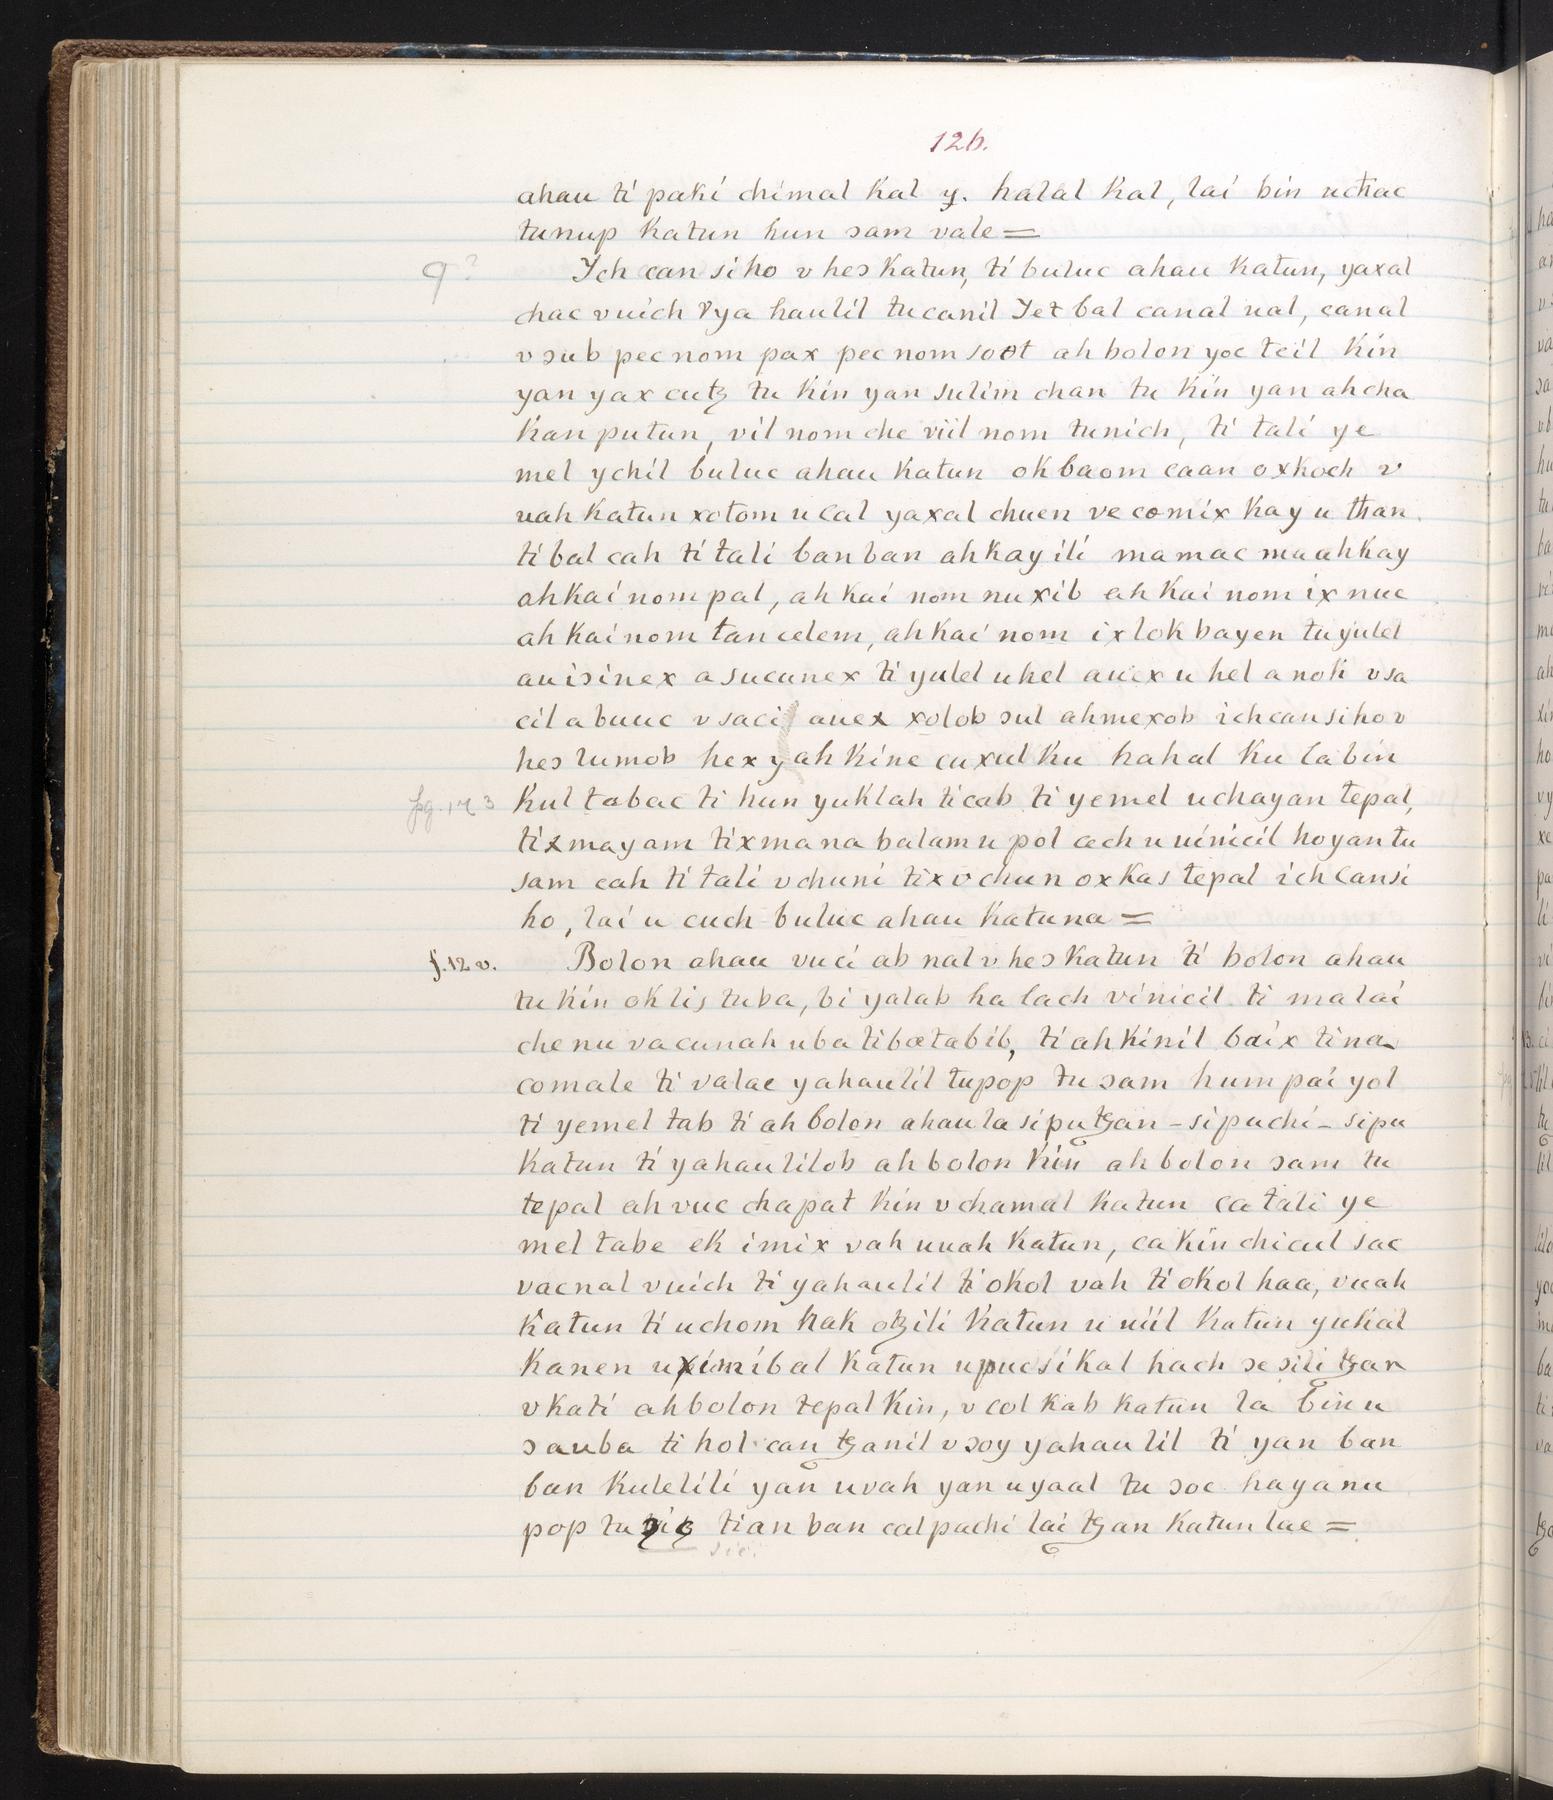 126.
ahau ti pakí chimal kal y. halal kal, lai bin uchac
tunup katun hun ɔam vale =
9?
Ych can siho v heɔ katun, ti buluc ahau katun, yaxal
chac vuich v ya haulil tucanil Yet bal canal ual, canal
v ɔub pecnom pax pecnom soot ah bolon yoc teil kin
yan yax cutꜩ tu kin yan sulim chan tu kin yan ahcha
kan putun, vil nom che viil nom tunich, ti tali ye
mel ychil buluc ahau katun okbaom caan oxkoch v
uah katun xotom u cal yaxal chuen ve comix kay u than
ti bal cah ti tali banban ahkay ili mamac maahkay
ahkai nom pal, ah kai nom nuxib ah kai nom ix nuc
ah kai nom tan celem, ahkai nom ixlok bayen tuyulel
auiɔinex a sucunex ti yulel uhel auex u hel a nok v sa
cil a buuc v sacil auex xolob ɔul ahmexob ichcansiho v
heɔ lumob hex y ah kine cuxul ku hahal ku labin
pg. 173
kul tabac ti hun yuklah ticab ti yemel uchayan tepal,
tix mayam tixmana balam u pol cech u uinicil hoyan tu
sam cah ti tali v chuni tix v chun oxkas tepal ichcansi
ho, lai u cuch buluc ahau katuna =
f. 12 v.
Bolon ahau vuci ab nal v heɔ katun ti bolon ahau
tu kin oklis tuba, bi yalab ha lach vinicil ti malai
chenu vacunah uba ti batabib, ti ah kinil baix ti na
comale ti valac yahaulil tupop tu ɔam humpai yol
ti yemel tab ti ah bolon ahaula sipu tꜩan - sipuchi - sipu
katun ti yahaulilob ah bolon kin ah bolon ɔam tu
tepal ah vuc chapat kin v chamal katun ca tali ye
mel tabe ek imix vah uuah katun, ca kin chicul sac
vacnal vuich ti yahaulil ti okol vah ti okol haa, vuah
katun ti uchom hak otꜩili katun u uiil katun yukal
kanen uximibal katun upucsikal hach ɔeɔili tꜩan
v kati ah bolon tepal kin, v col kab katun la binu
ɔauba ti hol can tꜩanil v ɔoy yahaulil ti yan ban
ban kulelili yan uvah yan uyaal tu ɔoc hayanu
pop tu tian ban calpachi lai tꜩan katun lae =
sic.